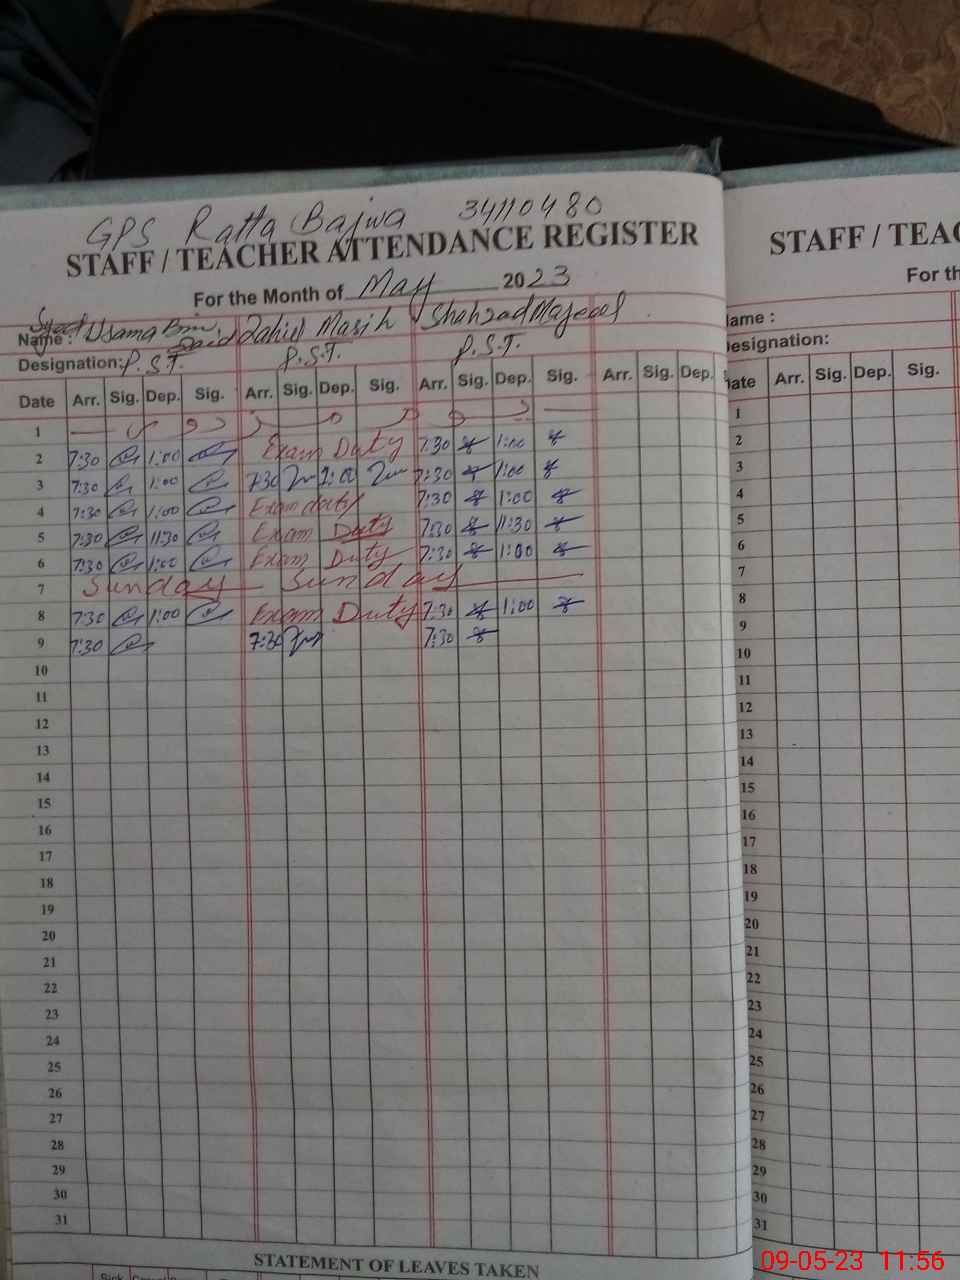 GPS Ratta Bajwa 34110480
STAFF / TEACHER ATTENDANCE REGISTER
For the Month of May 2023
Name: Syed Usama Bin Zahid Masih Shahzad Majeed
Designation: P.S.T. P.S.T. P.S.T.
Date Arr. Sig. Dep. Sig. Arr. Sig. Dep. Sig. Arr. Sig. Dep. Sig. Arr. Sig. Dep.
1
2 7:30 1:00 Exam Duty 7:30 1:00
3 7:30 1:00 7:30 1:00 7:30 1:00
4 7:30 1:00 Exam duty 7:30 1:00
5 7:30 11:30 Exam Duty 7:30 11:30
6 7:30 1:00 Exam Duty 7:30 1:00
7 Sunday Sunday
8 7:30 1:00 Exam Duty 7:30 1:00
9 7:30 7:30 7:30
10
11
12
13
14
15
16
17
18
19
20
21
22
23
24
25
26
27
28
29
30
31
STATEMENT OF LEAVES TAKEN
STAFF / TEAC
For th
Name :
Designation:
Date Arr. Sig. Dep. Sig.
1
2
3
4
5
6
7
8
9
10
11
12
13
14
15
16
17
18
19
20
21
22
23
24
25
26
27
28
29
30
31
09-05-23 11:56